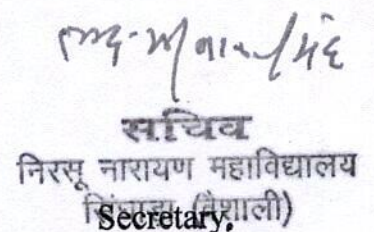 सचिव
निरसू नारायण महाविद्यालय
सिंघाड़ा (वैशाली)
Secretary,